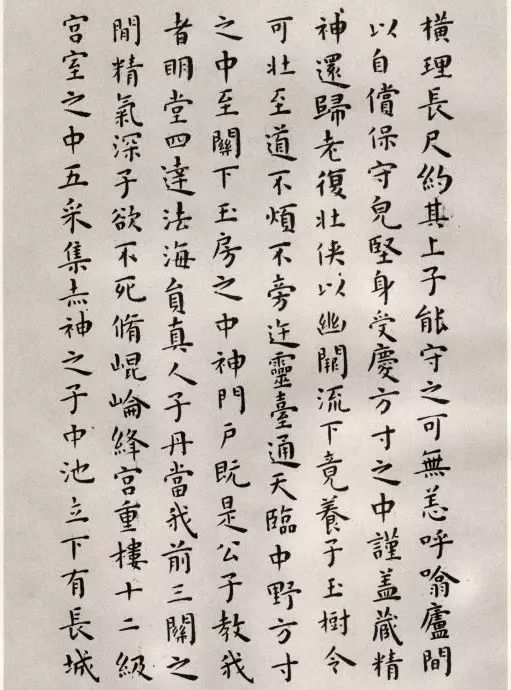 橫理長尺約其上子能守之可無恙呼噏廬間
以自償保守皃堅身受慶方寸之中謹盖藏精
神還歸老復壯俠以幽闕流下竟養子玉樹令
可壯至道不煩不旁迕靈臺通天臨中野方寸
之中至關下玉房之中神門戶既是公子教我
者明堂四達法海員真人子丹當我前三關之
間精氣深子欲不死脩崐崘絳宮重樓十二級
宮室之中五采集赤神之子中池立下有長城